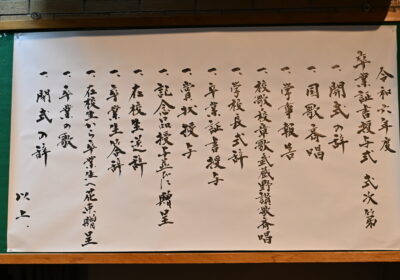 令和六年度
卒業証書授与式 式次第
一、開式の辞
一、国歌斉唱
一、学事報告
一、校歌校章歌武蔵野讃歌斉唱
一、学校長式辞
一、卒業証書授与
一、賞状授与
一、記念品授与並びに贈呈
一、在校生送辞
一、卒業生答辞
一、在校生から卒業生へ花束贈呈
一、卒業の歌
一、閉式の辞
以上